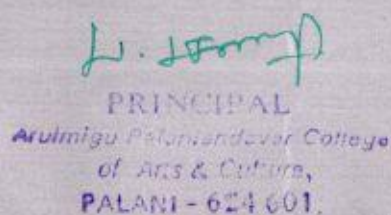 PRINCIPAL
Arulmigu Palaniandavar College
of Arts & Culture,
PALANI - 624 601.